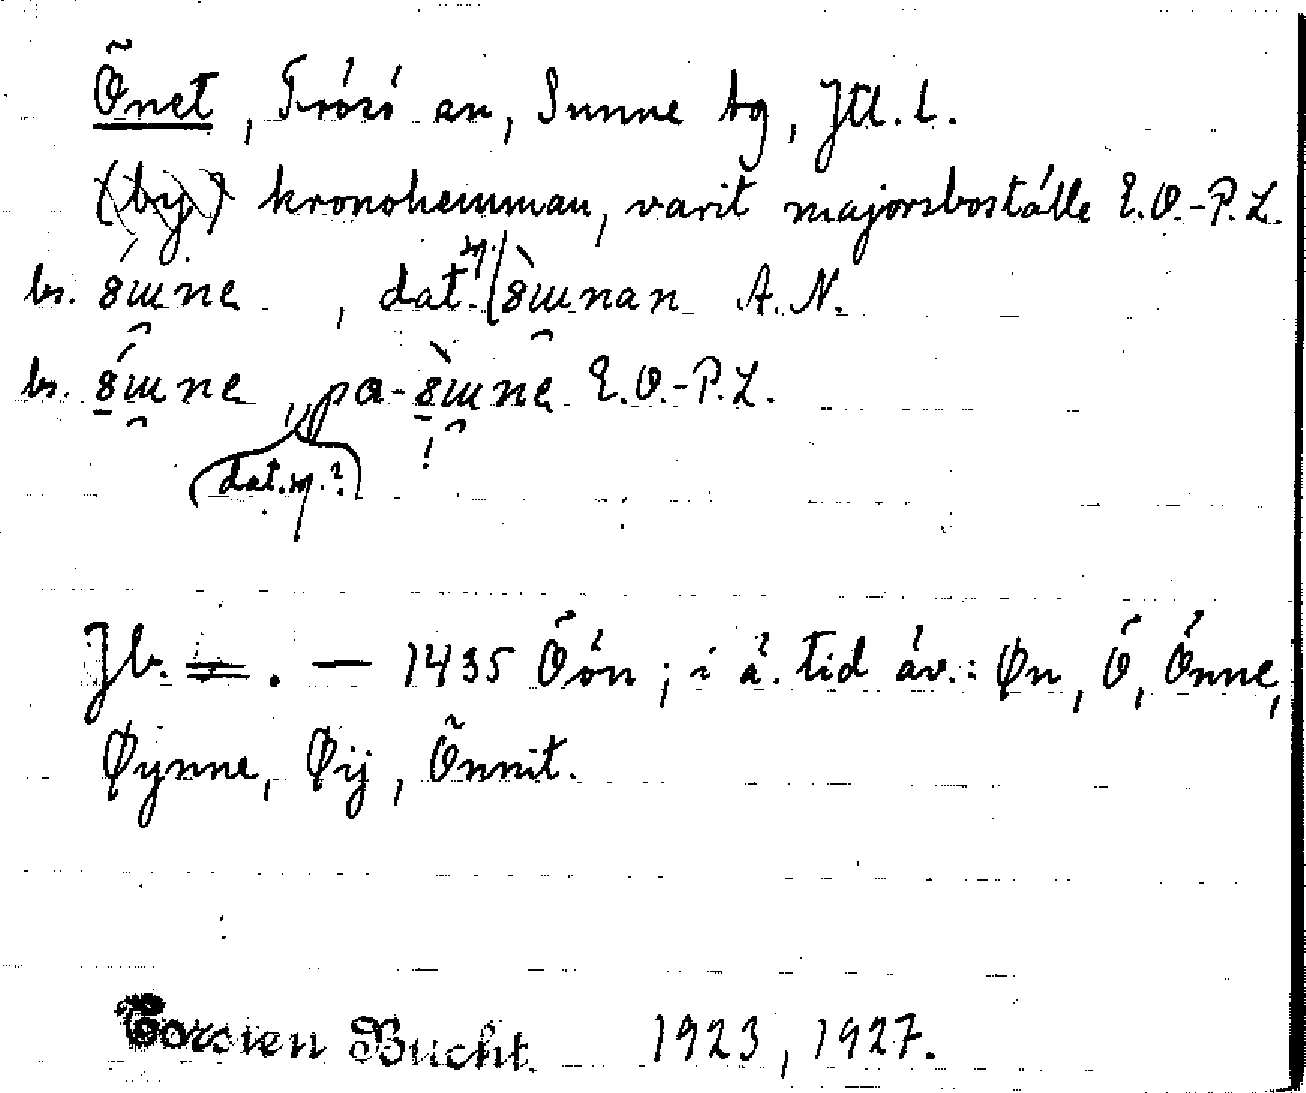 Önet, Frösö an, Sunne tg, Jtl. l.
(by) kronohemman, varit majorsboställe E.O.-P.L.
bs. , dat. A.N.
bs. , E.O.-P.L.
dat. ?
Jb. =. — 1435 Öön; i ä. tid äv.: Øn, Ö, Önne,
Øynne, Øij, Önnit.
Torsten Bucht. 1923, 1927.